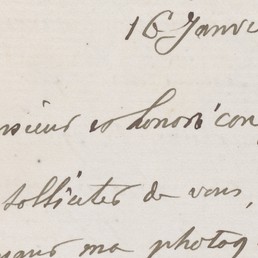 16 Janvi
nsieur et honoré con
solliciter de vous,
ma photog